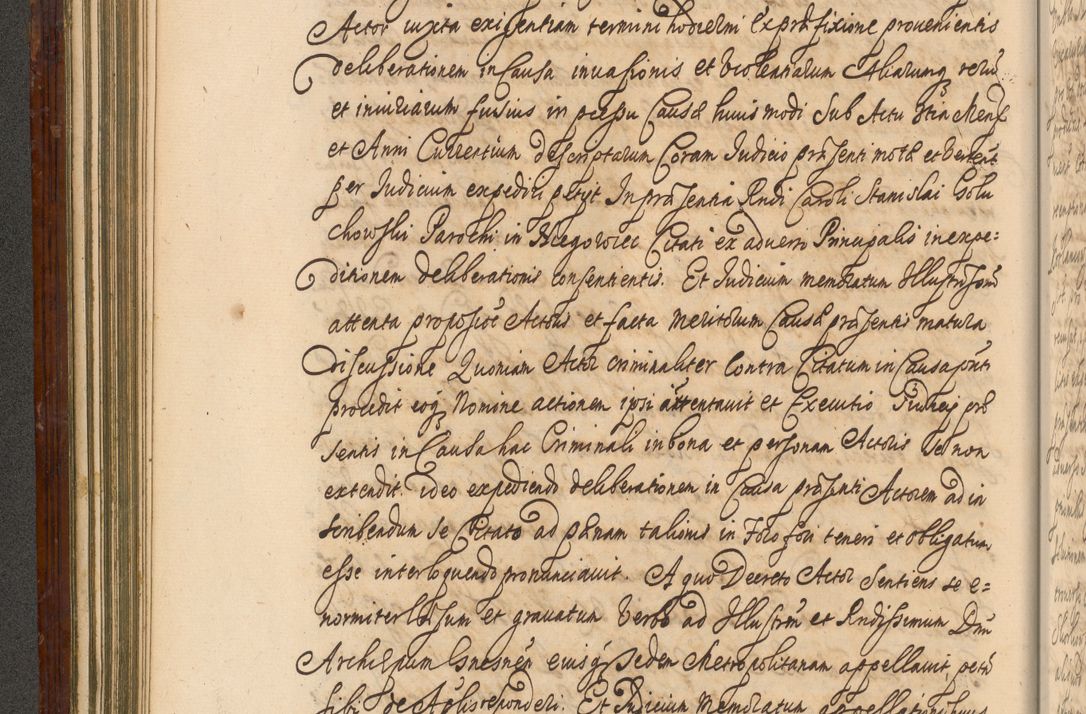 Actor iuxta exigentiam termini hodierni ex præfixione provenientis
deliberationem in Causa invasionis et violentiarum Aliarumq rerū
et iniuriarum fusius in pcessu Causæ huiusmodi sub Actu Mens
et Anni Currentium descriptarum Coram Judicio præsenti motæ et vertent
per Judicium expediri petijt In præsentia Rndi Caroli Stanislai Golu
chowski Parochi in Biegowiec Citati ex adverso Principalis in expe=
ditionem deliberationis consentientis. Et Judicium memoratum Illustrissimi
attenta proposiōe Actoris et facta meritorum Causæ præsentis matura
discussione Quoniam Actor criminaliter contra Citatum in Causa pñti
procedit eoq Nomine actionem ipsi attentavit et Executio præ
sentis in Causa hac Criminali in bona et personam Actoris se non
extendit. ideo expediendo deliberationem in Causa præsenti Actorem ad in
scribendum se Citato ad pænam talionis in Foro fori teneri et obligatum
esse interloquendo pronunciavit. A quo Decreto Actor Sentiens se e=
normiter læsum et gravatum verbo ad Illustrm et Rndissimum Dnū
Archiepum Gnesnēn eiusq Sedem Metropolitanam appellavit, petō
sibi de Aplis responderi. Et Judicium Memoratum appellationibus